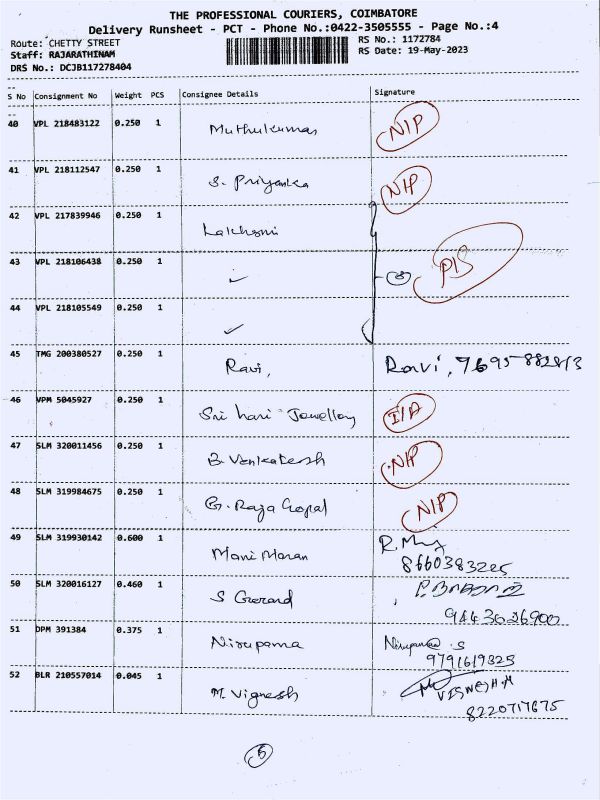 THE PROFESSIONAL COURIERS, COIMBATORE
Delivery Runsheet - PCT - Phone No.:0422-3505555 - Page No.:4
Route: CHETTY STREET
RS No.: 1172784
Staff: RAJARATHINAM
RS Date: 19-May-2023
DRS No.: DCJB117278404
S No Consignment No Weight PCS Consignee Details Signature
40 VPL 218483122 0.250 1 Muthukumar N/P
41 VPL 218112547 0.250 1 S. Priyanka N/P
42 VPL 217839946 0.250 1 Lakhsmi
43 VPL 218106438 0.250 1 ✓ P/S
44 VPL 218105549 0.250 1 ✓
45 TMG 200380527 0.250 1 Ravi, Ravi, 7695882813
46 VPM 5045927 0.250 1 Sri hari Jewellery I/A
47 SLM 320011456 0.250 1 B. Venkatesh N/P
48 SLM 319984675 0.250 1 G. Raja Gopal N/P
49 SLM 319930142 0.600 1 Mani Maran R. Mani
8660383225
50 SLM 320016127 0.460 1 S
9443626900
51 DPM 391384 0.375 1 Nirupama Nirupama S
9791619325
52 BLR 210557014 0.045 1 M. Vignesh VIGNESH.M
8220717675
5